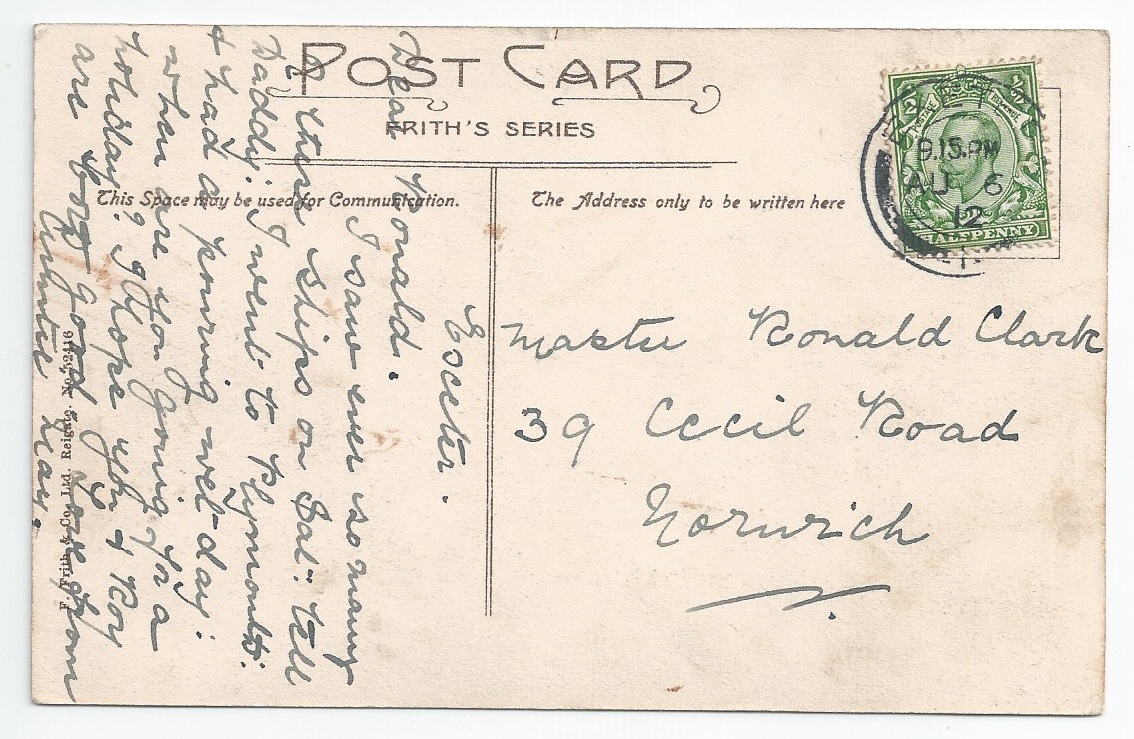 POST CARD
FRITH'S SERIES
This Space may be used for Communication.
The Address only to be written here
½ POSTAGE REVENUE ½
HALFPENNY
9.15 PM
AU 6
12
Master Ronald Clark
39 Cecil Road
Norwich
Exeter.
Dear Ronald.
I saw ever so many
of these ships on Sat: tell
Daddy: I went to Plymouth:
& had a pouring wet-day:
when are you going for a
holiday? I hope you & Roy
are very good Love from
Auntie May.
F. Frith & Co., Ltd. Reigate. No. 52416